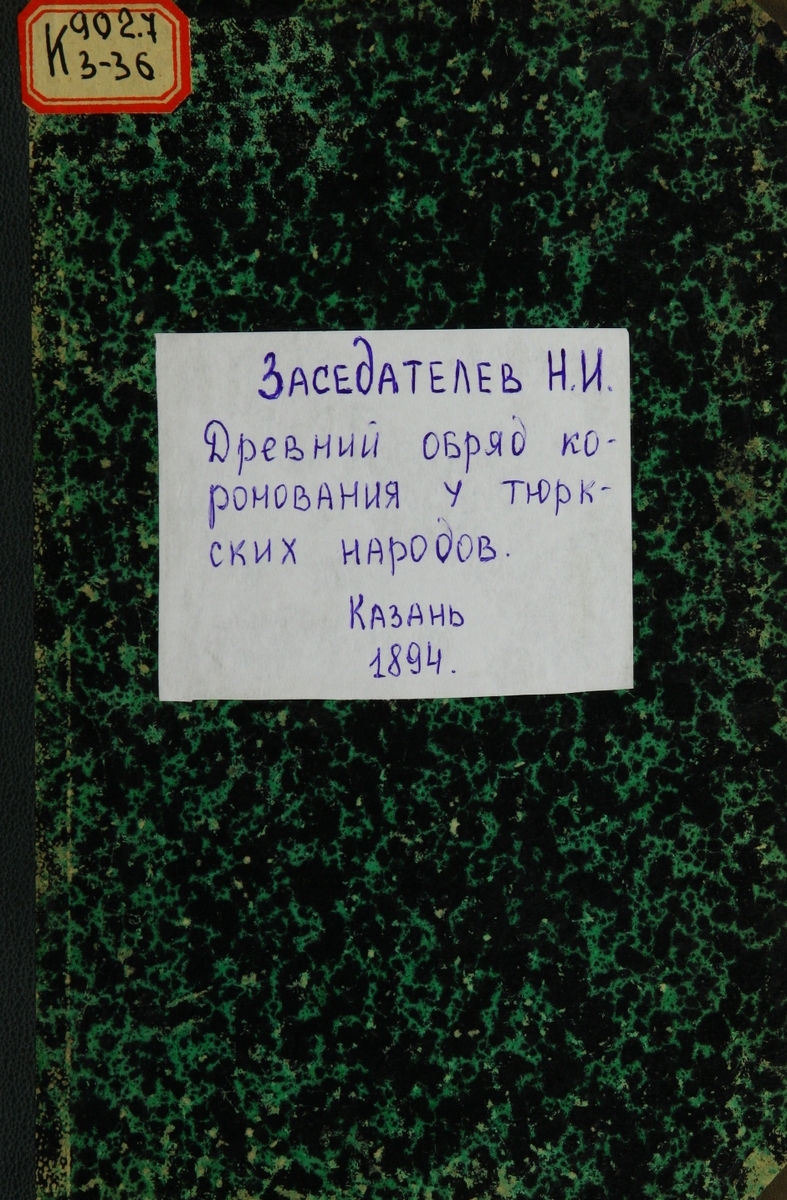 К 902.7
З-36
Заседателев Н.И.
Древний обряд ко-
ронования у тюрк-
ских народов.
Казань
1894.